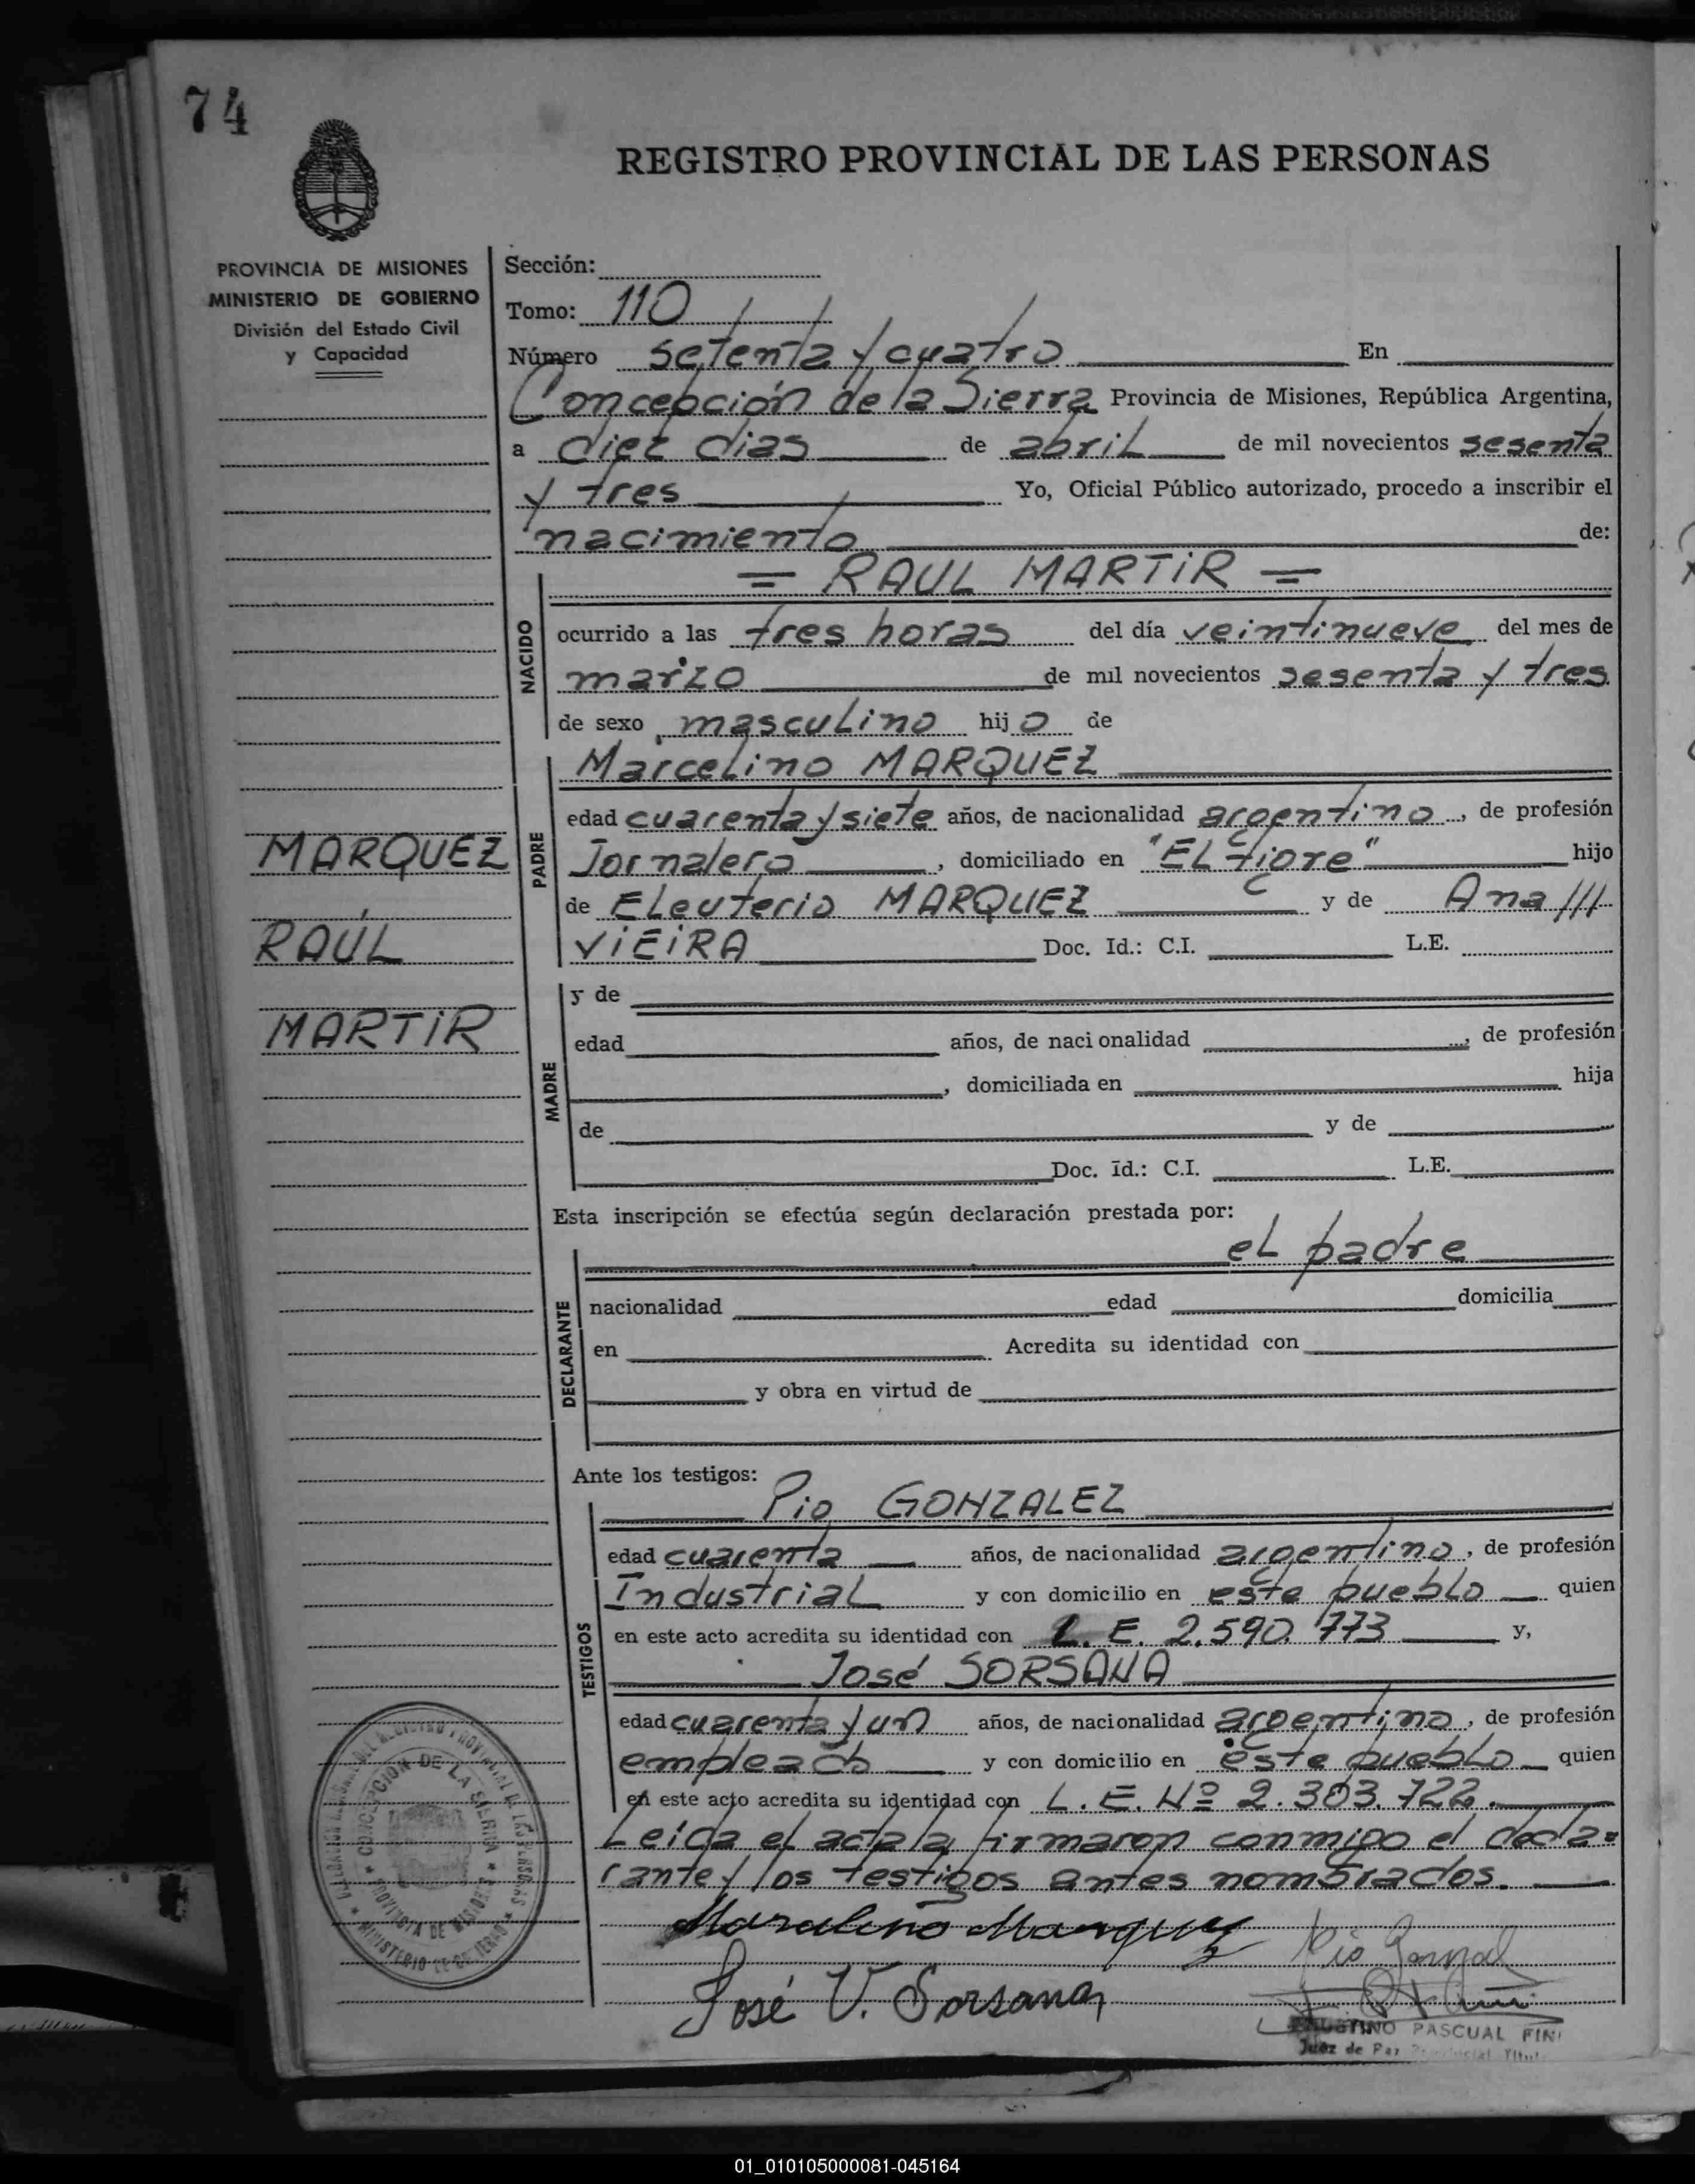 74
REGISTRO PROVINCIAL DE LAS PERSONAS
PROVINCIA DE MISIONES
MINISTERIO DE GOBIERNO
División del Estado Civil
y Capacidad
Sección:
Tomo: 110
Número setenta y cuatro En
Concepción de la Sierra Provincia de Misiones, República Argentina,
a diez dias de abril de mil novecientos sesenta
y tres Yo, Oficial Público autorizado, procedo a inscribir el
nacimiento de:
= RAUL MARTIR =
NACIDO
ocurrido a las tres horas del día veintinueve del mes de
marzo de mil novecientos sesenta y tres
de sexo masculino hijo de
Marcelino MARQUEZ
PADRE
edad cuarenta y siete años, de nacionalidad argentino, de profesión
Jornalero, domiciliado en "EL Tigre" hijo
de Eleuterio MARQUEZ y de Ana ///
VIEIRA Doc. Id.: C.I. L.E.
MARQUEZ
RAÚL
MARTIR
MADRE
y de
edad años, de nacionalidad, de profesión
, domiciliada en hija
de y de
Doc. Id.: C.I. L.E.
Esta inscripción se efectúa según declaración prestada por:
el padre
DECLARANTE
nacionalidad edad domicilia
en Acredita su identidad con
y obra en virtud de
Ante los testigos:
Pio GONZALEZ
TESTIGOS
edad cuarenta años, de nacionalidad argentino, de profesión
Industrial y con domicilio en este pueblo quien
en este acto acredita su identidad con L. E. 2.590.773 y,
José SORSANA
edad cuarenta y un años, de nacionalidad argentino, de profesión
empleado y con domicilio en este pueblo quien
en este acto acredita su identidad con L. E. Nº 2.303.722.
Leída el acta la firmaron conmigo el decla=
rante y los testigos antes nombrados.
Marcelino Marquez
Pio
José V. Sorsana
FAUSTINO PASCUAL FINI
Juez de Paz
CONCEPCION DE LA SIERRA
PROVINCIA DE MISIONES
MINISTERIO DE GOBIERNO
01_010105000081-045164